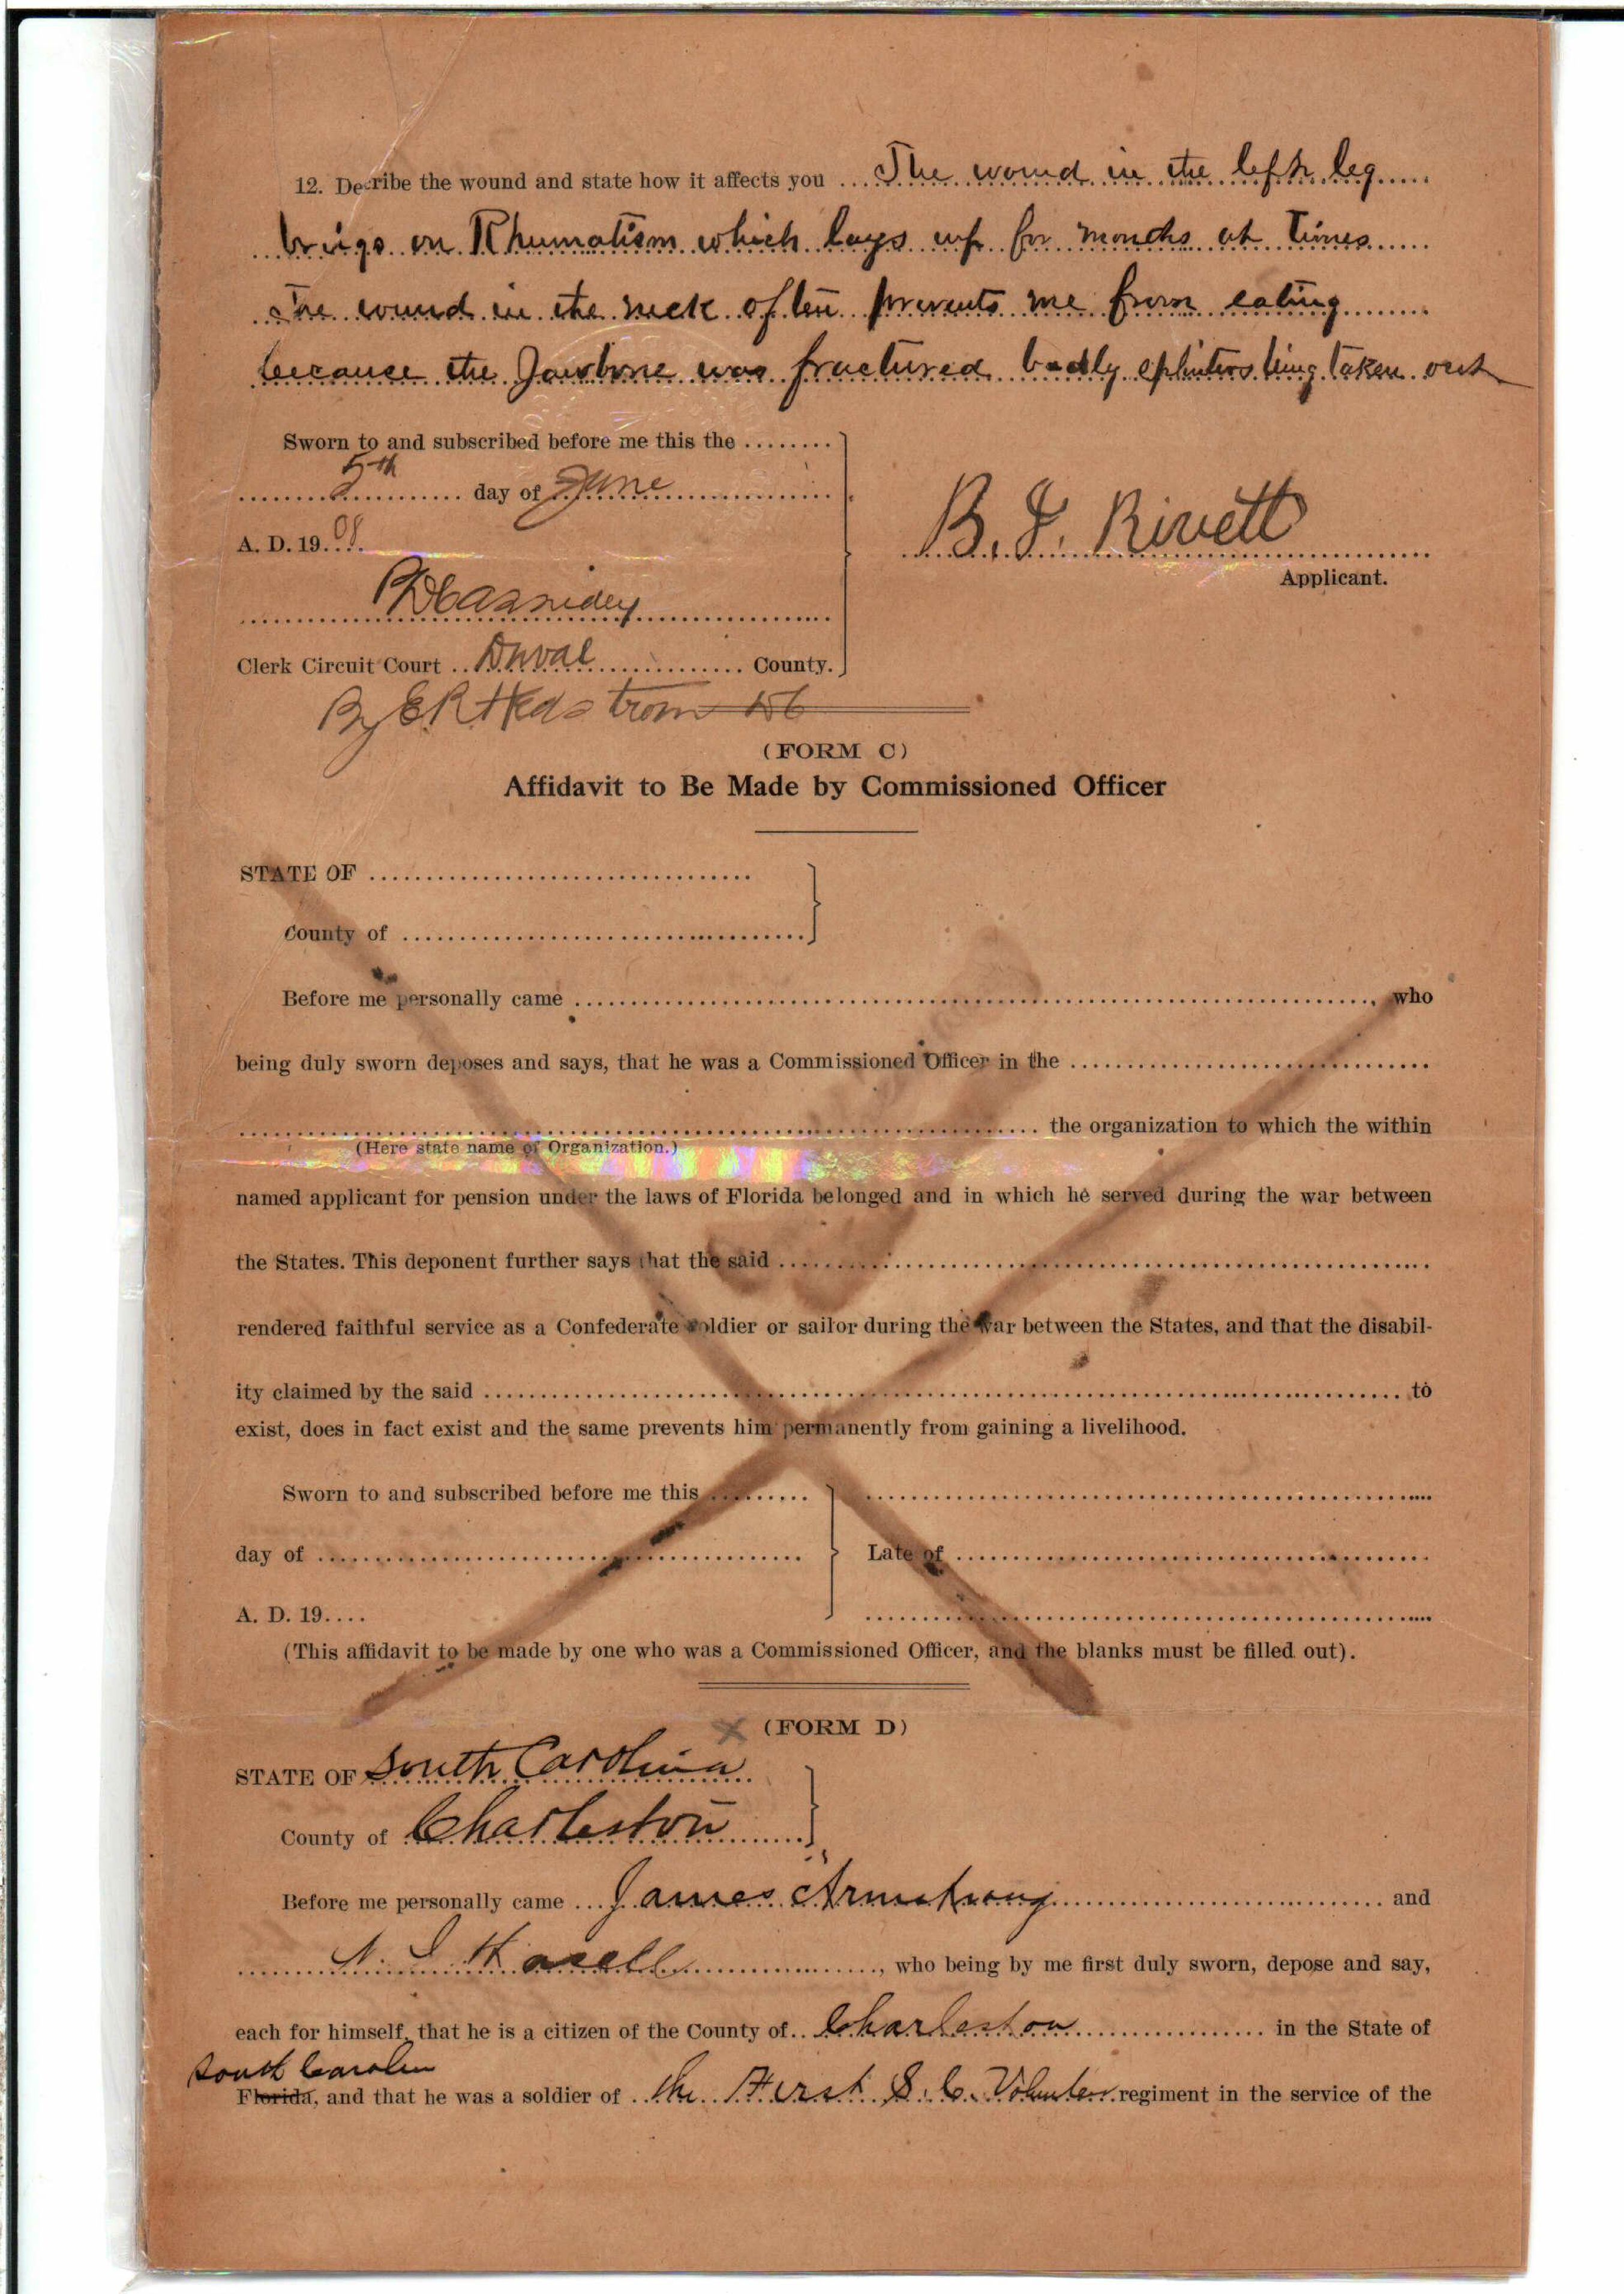 12. Decribe the wound and state how it affects you ... The wound in the left leg
brigs on Rhumatism which lays up for months at Times
The wound in the neck often prevents me from eating
because the Jawbone was fractured badly splinters being taken out
Sworn to and subscribed before me this the ........
5th day of June
A. D. 19 08.
Cassidey
Clerk Circuit Court .. Duval ........ County.
B. J. Rivett
Applicant.
By E R Hedstrom DC
(FORM C)
Affidavit to Be Made by Commissioned Officer
STATE OF ........
County of ........
Before me personally came ........, who
being duly sworn deposes and says, that he was a Commissioned Officer in the ........
........ the organization to which the within
(Here state name of Organization.)
named applicant for pension under the laws of Florida belonged and in which he served during the war between
the States. This deponent further says that the said ........
rendered faithful service as a Confederate soldier or sailor during the war between the States, and that the disabil-
ity claimed by the said ........ to
exist, does in fact exist and the same prevents him permanently from gaining a livelihood.
Sworn to and subscribed before me this ........
day of ........ Late of ........
A. D. 19....
(This affidavit to be made by one who was a Commissioned Officer, and the blanks must be filled out).
x (FORM D)
STATE OF South Carolina
County of Charleston
Before me personally came ... James Armstrong ........ and
N. I. Hasell ........, who being by me first duly sworn, depose and say,
each for himself, that he is a citizen of the County of.. Charleston ........ in the State of
South Carolin
Florida, and that he was a soldier of ... the First S. C. Volunteers regiment in the service of the